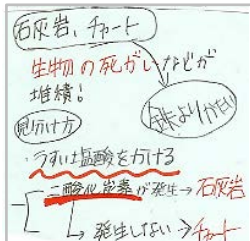 石灰岩、チャート
生物の死がいなどが
堆積!
鉄よりかたい
見分け方
・うすい塩酸をかける
二酸化炭素が発生→石灰岩
→発生しない→チャート